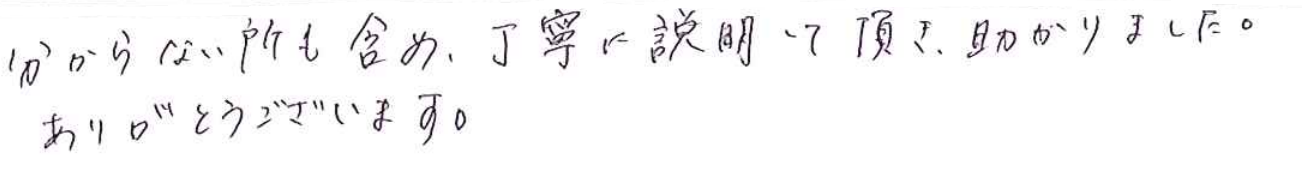 分からない所も含め、丁寧に説明して頂き、助かりました。
ありがとうございます。